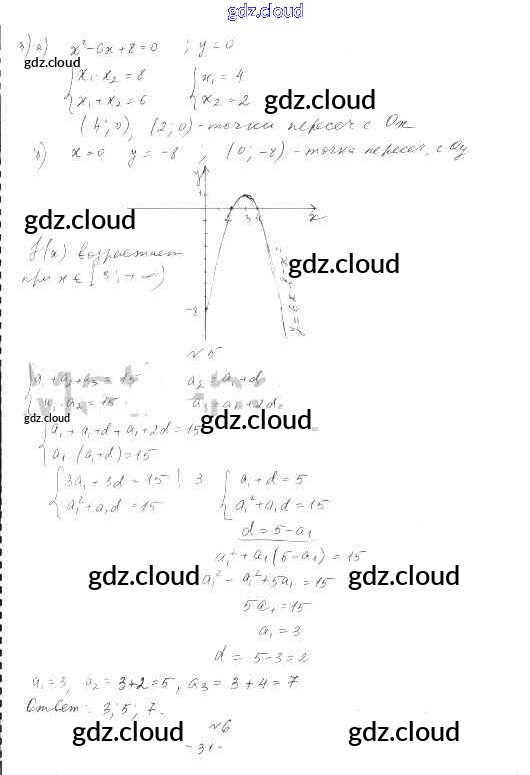 gdz.cloud
3) а) x² - 6x + 8 = 0 ; y = 0
gdz.cloud
{ x₁ · x₂ = 8 { x₁ = 4
{ x₁ + x₂ = 6 { x₂ = 2
gdz.cloud
(4; 0), (2; 0) - точки пересеч с Ox
в) x = 0 y = -8 ; (0; -8) - точка пересеч. с Oy
y
1
2 3 4 x
gdz.cloud
f(x) возрастает
gdz.cloud
при x ∈ [3; +∞)
-8
y = 6x - 8 - x²
№ 5
{ a₁ + a₂ + a₃ = 15 a₂ = a₁ + d
{ a₁ · a₂ = 15 a₃ = a₁ + 2d
gdz.cloud
gdz.cloud
{ a₁ + a₁ + d + a₁ + 2d = 15
{ a₁ · (a₁ + d) = 15
{ 3a₁ + 3d = 15 | 3 { a₁ + d = 5
{ a₁² + a₁d = 15 { a₁² + a₁d = 15
d = 5 - a₁
a₁² + a₁(5 - a₁) = 15
gdz.cloud gdz.cloud
a₁² - a₁² + 5a₁ = 15
5a₁ = 15
a₁ = 3
d = 5 - 3 = 2
a₁ = 3, a₂ = 3 + 2 = 5, a₃ = 3 + 4 = 7
Ответ: 3; 5; 7.
№ 6
gdz.cloud gdz.cloud
- 31 -